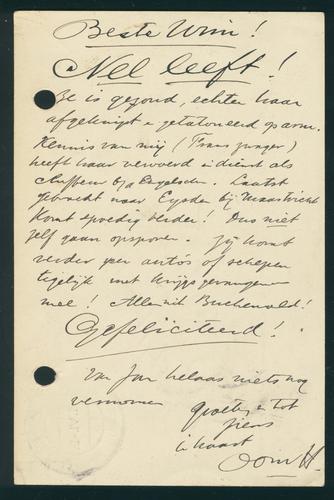 Beste Wim!
Nel leeft!
Ze is gezond, echter haar
afgeknipt en getatoueerd op arm.
Kennis van mij (Frans Junger)
heeft haar vervoerd in dienst als
chauffeur b/d Engelschen. Laatst
gebracht naar Eysden bij Maastricht
Komt spoedig verder! Dus niet
zelf gaan opsporen. Zij komt
verder per auto's of schepen
tegelijk met krijgsgevangenen
mee! Allen uit Buchenwald!
Gefeliciteerd!
Van Jan helaas niets nog
vernomen
Groeten en tot
ziens
in haast
Oom H.